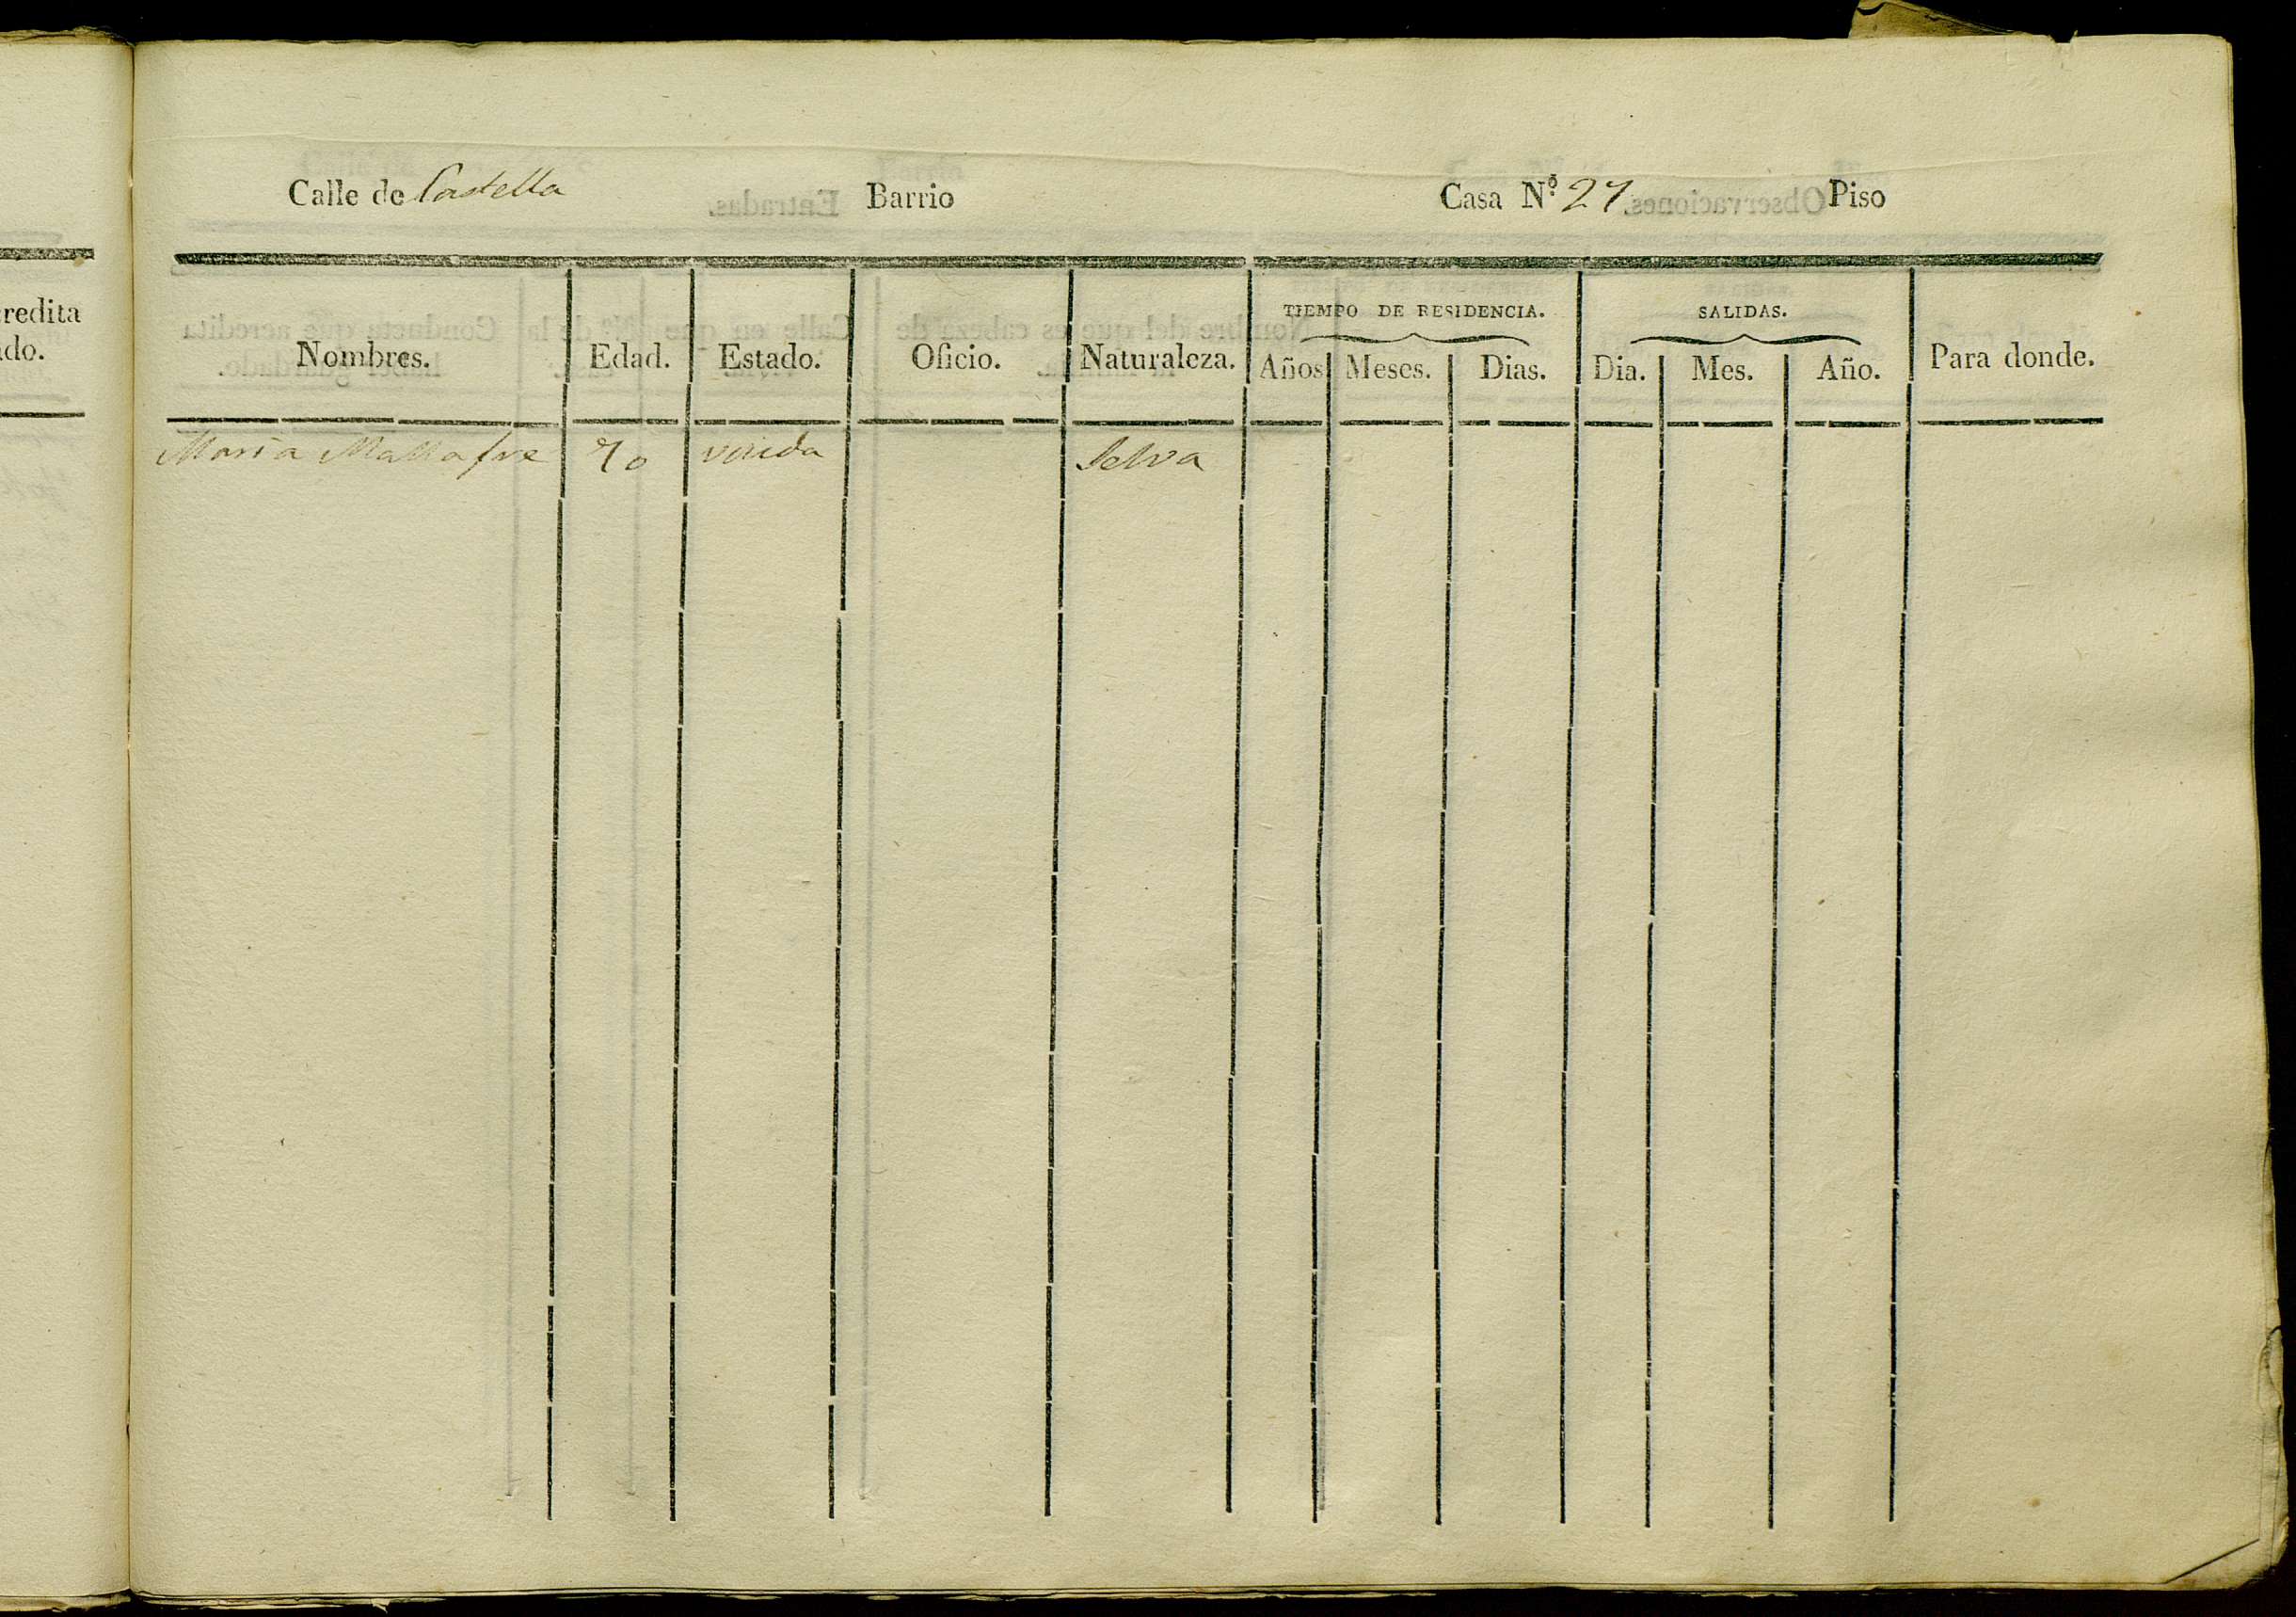 Calle de Castella Barrio Casa N.º 27. Piso
TIEMPO DE RESIDENCIA. SALIDAS.
Nombres. Edad. Estado. Oficio. Naturaleza. Años Meses. Dias. Dia. Mes. Año. Para donde.
Maria Mallafre 70 viuda Selva
redita
do.
Entradas.
Observaciones.
Conducta que acredita